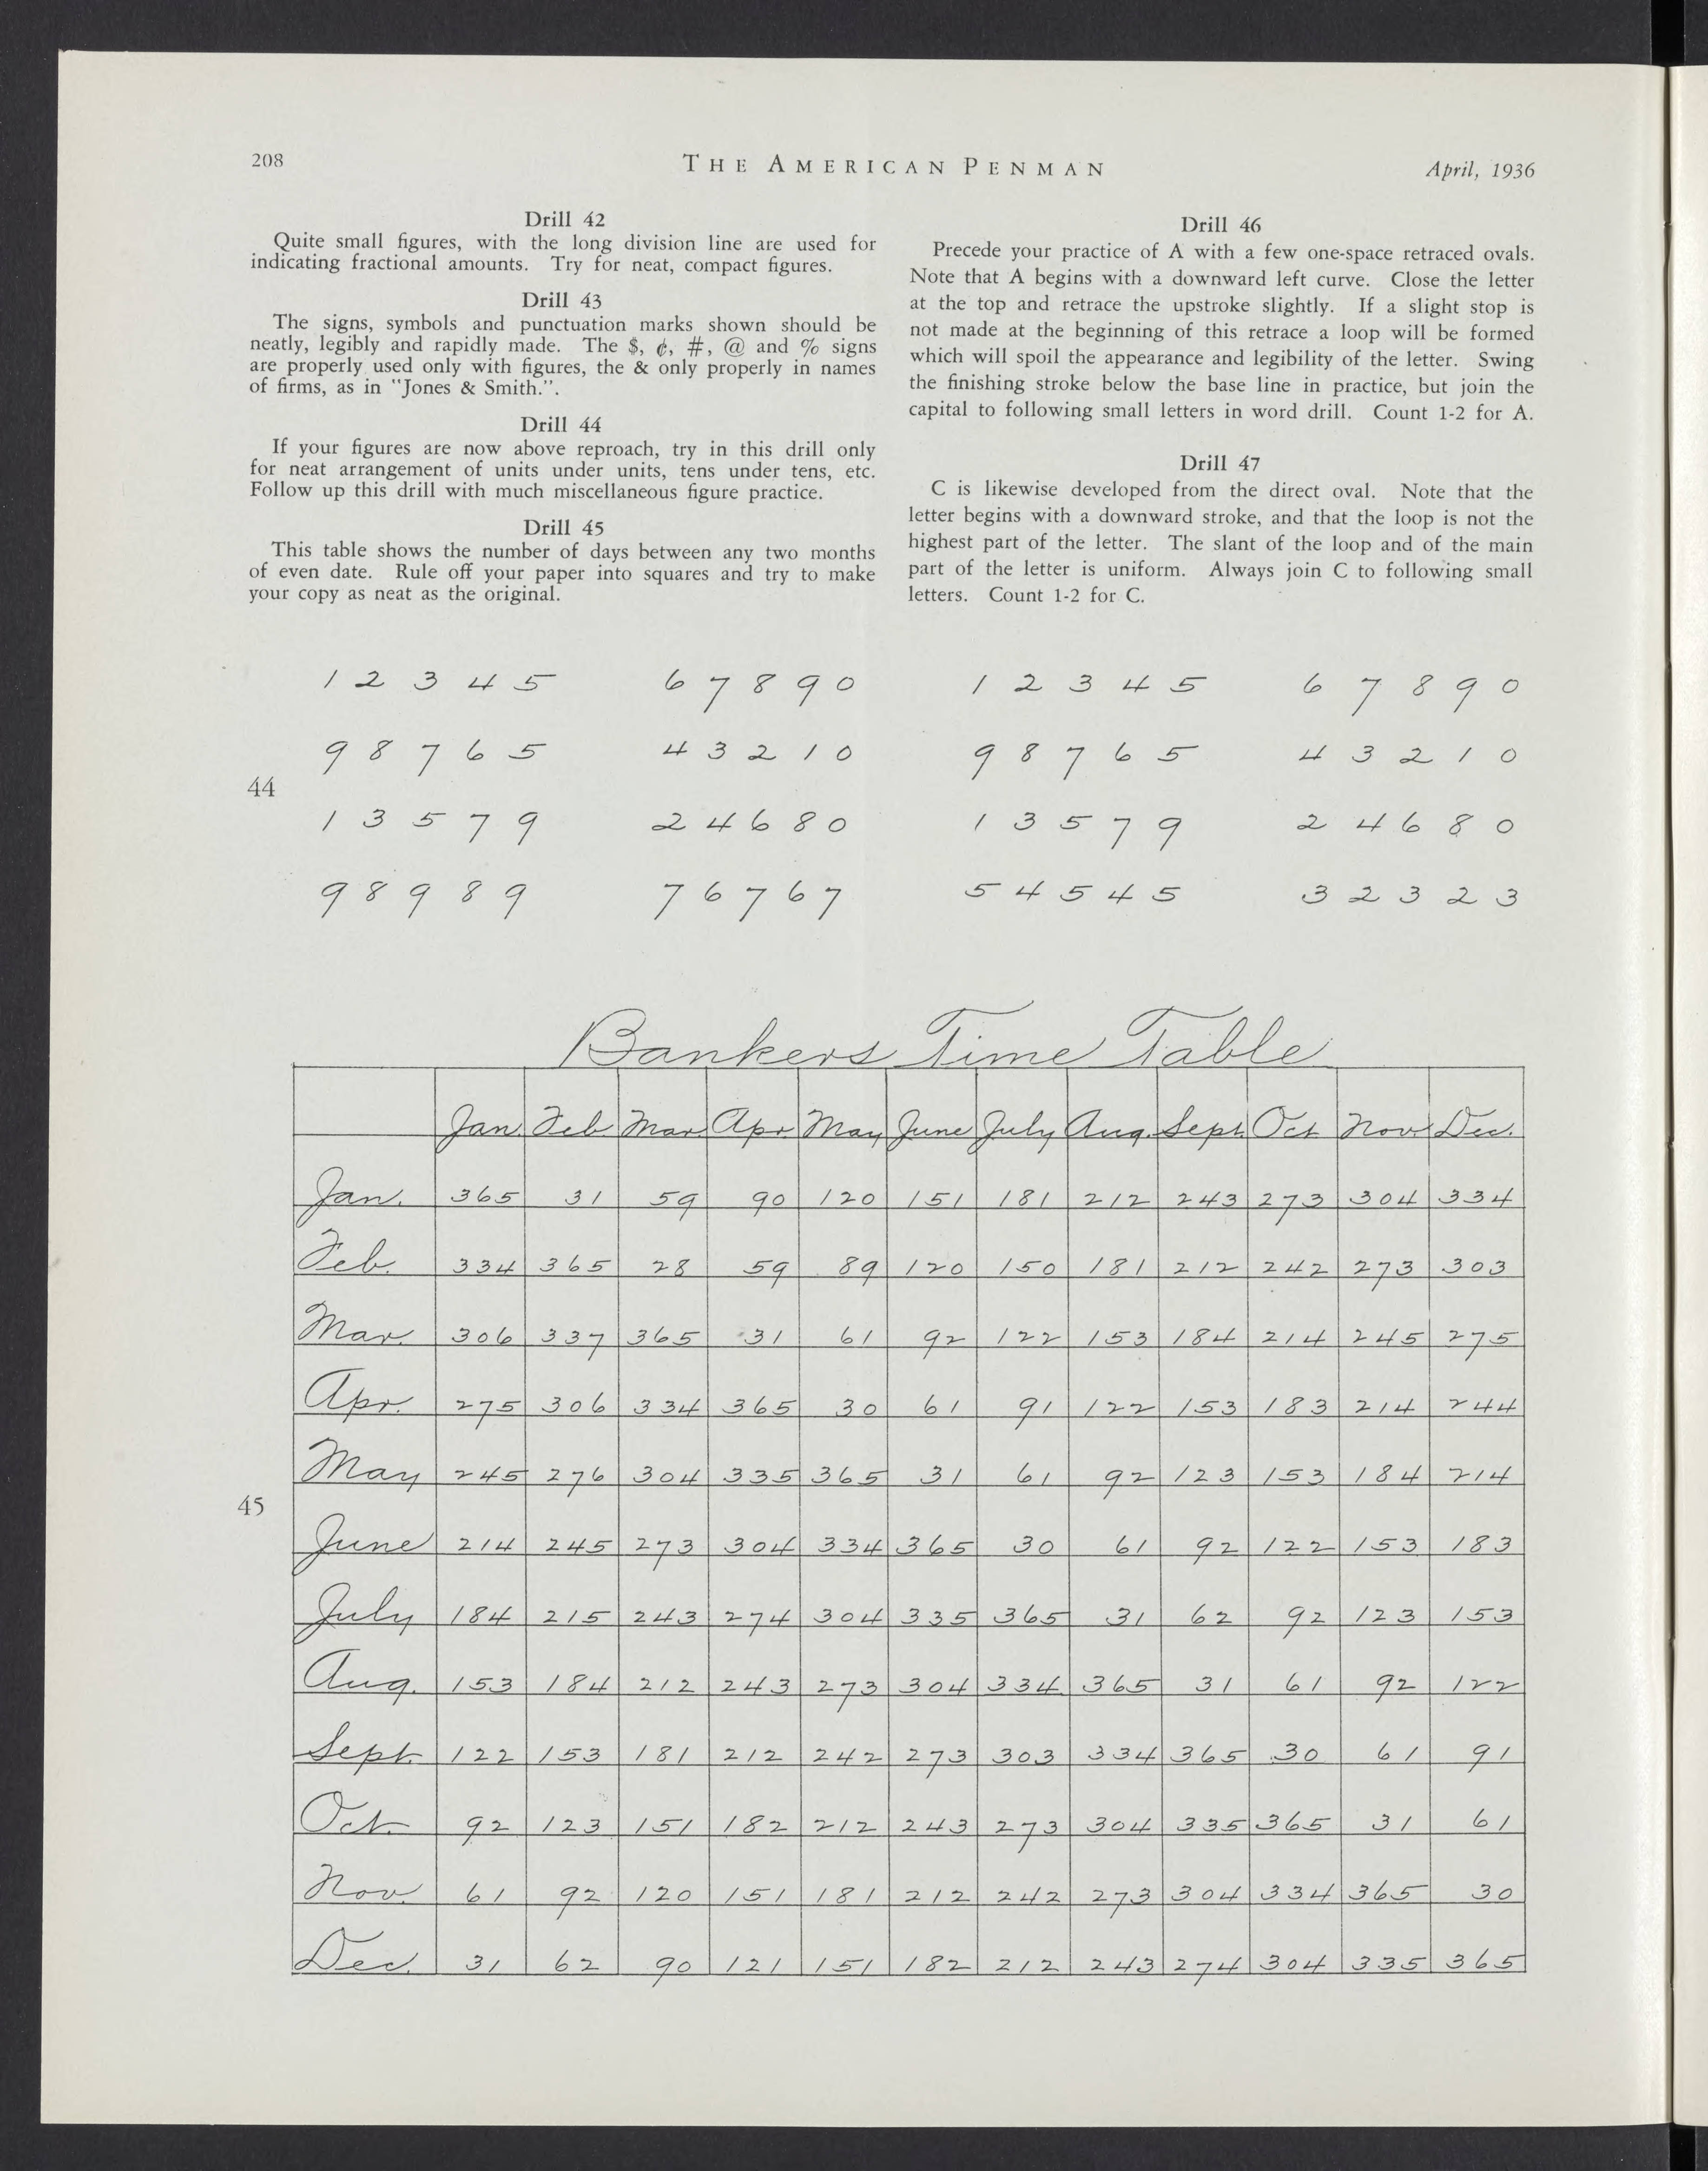 208
THE AMERICAN PENMAN
April, 1936
Drill 42
Quite small figures, with the long division line are used for
indicating fractional amounts. Try for neat, compact figures.
Drill 43
The signs, symbols and punctuation marks shown should be
neatly, legibly and rapidly made. The $, ¢, #, @ and % signs
are properly used only with figures, the & only properly in names
of firms, as in "Jones & Smith.".
Drill 44
If your figures are now above reproach, try in this drill only
for neat arrangement of units under units, tens under tens, etc.
Follow up this drill with much miscellaneous figure practice.
Drill 45
This table shows the number of days between any two months
of even date. Rule off your paper into squares and try to make
your copy as neat as the original.
Drill 46
Precede your practice of A with a few one-space retraced ovals.
Note that A begins with a downward left curve. Close the letter
at the top and retrace the upstroke slightly. If a slight stop is
not made at the beginning of this retrace a loop will be formed
which will spoil the appearance and legibility of the letter. Swing
the finishing stroke below the base line in practice, but join the
capital to following small letters in word drill. Count 1-2 for A.
Drill 47
C is likewise developed from the direct oval. Note that the
letter begins with a downward stroke, and that the loop is not the
highest part of the letter. The slant of the loop and of the main
part of the letter is uniform. Always join C to following small
letters. Count 1-2 for C.
44
1 2 3 4 5 6 7 8 9 0 1 2 3 4 5 6 7 8 9 0
9 8 7 6 5 4 3 2 1 0 9 8 7 6 5 4 3 2 1 0
1 3 5 7 9 2 4 6 8 0 1 3 5 7 9 2 4 6 8 0
9 8 9 8 9 7 6 7 6 7 5 4 5 4 5 3 2 3 2 3
Bankers Time Table
45
Jan. Feb. Mar. Apr. May June July Aug. Sept. Oct. Nov. Dec.
Jan. 365 31 59 90 120 151 181 212 243 273 304 334
Feb. 334 365 28 59 89 120 150 181 212 242 273 303
Mar. 306 337 365 31 61 92 122 153 184 214 245 275
Apr. 275 306 334 365 30 61 91 122 153 183 214 244
May 245 276 304 335 365 31 61 92 123 153 184 214
June 214 245 273 304 334 365 30 61 92 122 153 183
July 184 215 243 274 304 335 365 31 62 92 123 153
Aug. 153 184 212 243 273 304 334 365 31 61 92 122
Sept. 122 153 181 212 242 273 303 334 365 30 61 91
Oct. 92 123 151 182 212 243 273 304 335 365 31 61
Nov. 61 92 120 151 181 212 242 273 304 334 365 30
Dec. 31 62 90 121 151 182 212 243 274 304 335 365